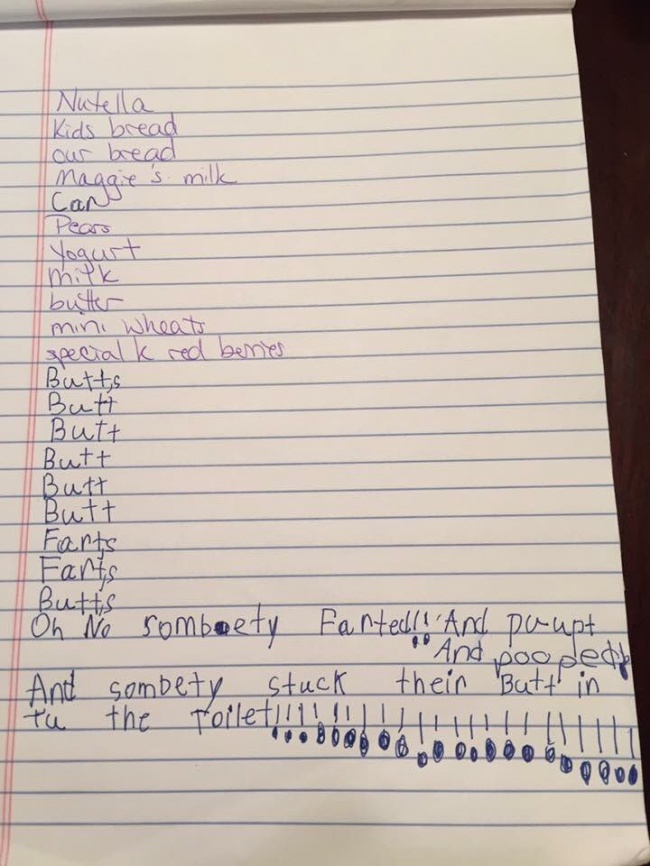 Nutella
Kids bread
our bread
Maggie's milk
Can
Pears
Yogurt
milk
butter
mini wheats
special k red berries
Butts
Butt
Butt
Butt
Butt
Butt
Farts
Farts
Butts
Oh No somboety Farted!! And pu-upt
And poo ped
And sombety stuck their Butt in
tu the toilet!!!!!!!!!!!!!!!!!!!!!!!